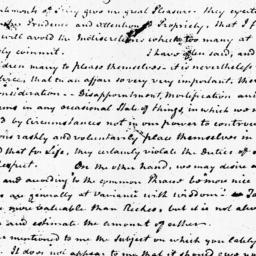 give me great Pleasure. they
Prudence and attention to Propriety, that I f
will avoid the Indiscretions which too many at
ly commit. I have often said, and
dren marry to please themselves. it is nevertheless
vice, that in an affair so very very important, the
consideration — Disappointment, mortification and
in any occasional State of things, in which we
d by circumstances not in our power to controul
rashly and voluntarily place themselves in
and that for Life, they certainly violate the Duties of
respect. On the other hand, we may desire
and according to the common Phrase be more nice
are generally at Variance with Wisdom
more valuable than Riches, but it is not al
and estimate the amount of either.
mentioned to me the Subject on which you lately
It does not appear to me that it should give